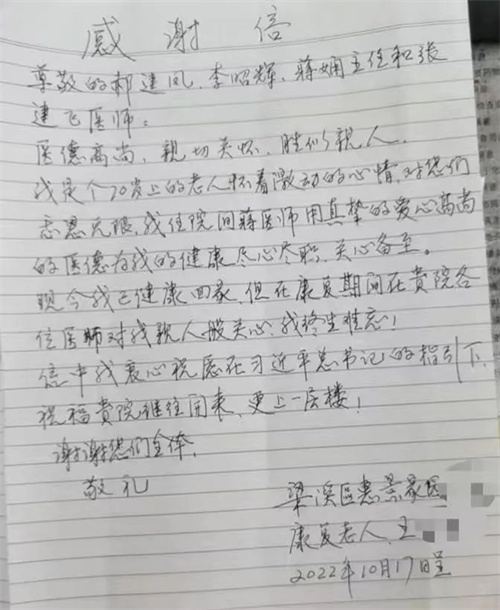 感谢信
尊敬的郝建凤、李昭辉、蒋娴主任和张
建飞医师:
医德高尚,亲切关怀,胜似亲人。
我是个70岁上的老人怀着激动的心情,对您们
感恩无限,我住院间蒋医师用真挚的爱心高尚
的医德为我的健康尽心尽职,关心备至。
现今我已健康回家,但在康复期间在贵院各
位医师对我亲人般关心,我终生难忘!
信中我衷心祝愿在习近平总书记的指引下,
祝福贵院继往开来,更上一层楼!
谢谢您们全体,
敬礼
梁溪区惠景家园
康复老人,王
2022年10月17日呈